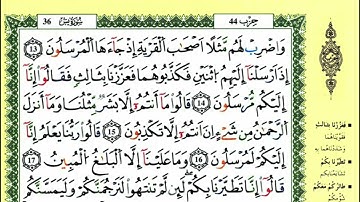 36 سُورَةُ يسٓ حِزْب 44
وَاضْرِبْ لَهُم مَّثَلًا أَصْحَٰبَ الْقَرْيَةِ إِذْ جَآءَهَا الْمُرْسَلُونَ 13
إِذْ أَرْسَلْنَآ إِلَيْهِمُ اثْنَيْنِ فَكَذَّبُوهُمَا فَعَزَّزْنَا بِثَالِثٍ فَقَالُوٓا إِنَّآ
إِلَيْكُم مُّرْسَلُونَ 14 قَالُوا مَآ أَنتُمُۥٓ إِلَّا بَشَرٌ مِّثْلُنَا وَمَآ أَنزَلَ
الرَّحْمَٰنُ مِن شَےْءٍ اِنَ اَنتُمُۥٓ إِلَّا تَكْذِبُونَ 15 قَالُوا رَبُّنَا يَعْلَمُ إِنَّآ
إِلَيْكُمْ لَمُرْسَلُونَ 16 وَمَا عَلَيْنَآ إِلَّا الْبَلَٰغُ الْمُبِينُ 17
قَالُوٓا إِنَّا تَطَيَّرْنَا بِكُمْ لَئِن لَّمْ تَنتَهُوا لَنَرْجُمَنَّكُمْ وَلَيَمَسَّنَّكُم
فَعَزَّزْنَا بِثَالِثٍ
تَطَيَّرْنَا بِكُمْ
طَائِرُكُم مَّعَكُمْ